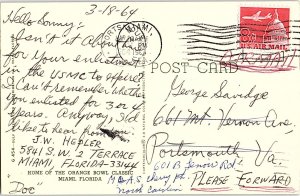 3-18-64
Hello Sonny:
Isn't it about
for your enlistment
in the USMC to expire?
I can't remember whether
you enlisted for 3 or 4
years. Anyway, I'd
like to hear from you.
J.W. HEPLER
5841 S.W. 2 TERRACE
MIAMI, FLORIDA 33144
HOME OF THE ORANGE BOWL CLASSIC
MIAMI, FLORIDA
"Doc"
MIAMI
U.S. AIR MAIL
POST CARD
George Savidge
661 Mt. Vernon Ave
Portsmouth Va.
North Carolina
PLEASE FORWARD